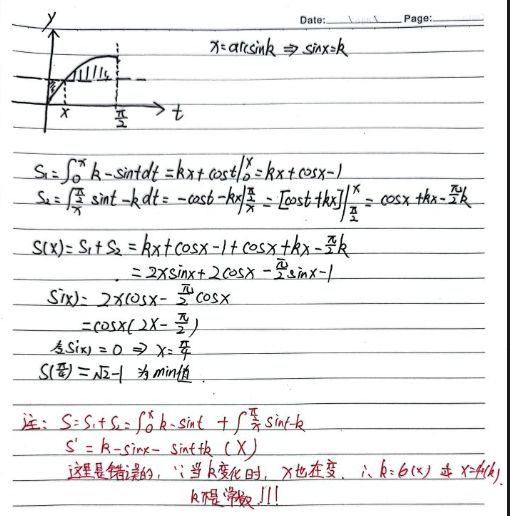 Date: Page:
y
x=arcsink ⇒ sinx=k
x π/2 t
S₁=∫₀ˣ k-sintdt =kx+cost|₀ˣ=kx+cosx-1
S₂=∫ₓ^(π/2) sint-kdt=-cost-kx|ₓ^(π/2)=[cost+kx]|_(π/2)^x=cosx+kx-π/2k
S(x)=S₁+S₂=kx+cosx-1+cosx+kx-π/2k
=2xsinx+2cosx-π/2sinx-1
S'(x)=2xcosx-π/2cosx
=cosx(2x-π/2)
令S'(x)=0 ⇒ x=π/4
S(π/4)=√2-1 为min值.
注: S=S₁+S₂=∫₀ˣ k-sint +∫ₓ^(π/2) sint-k
S'=k-sinx-sint+k (X)
这里是错误的, ∵当k变化时, x也在变. ∴k= (x) 或 x= (k),
k不是常数!!!